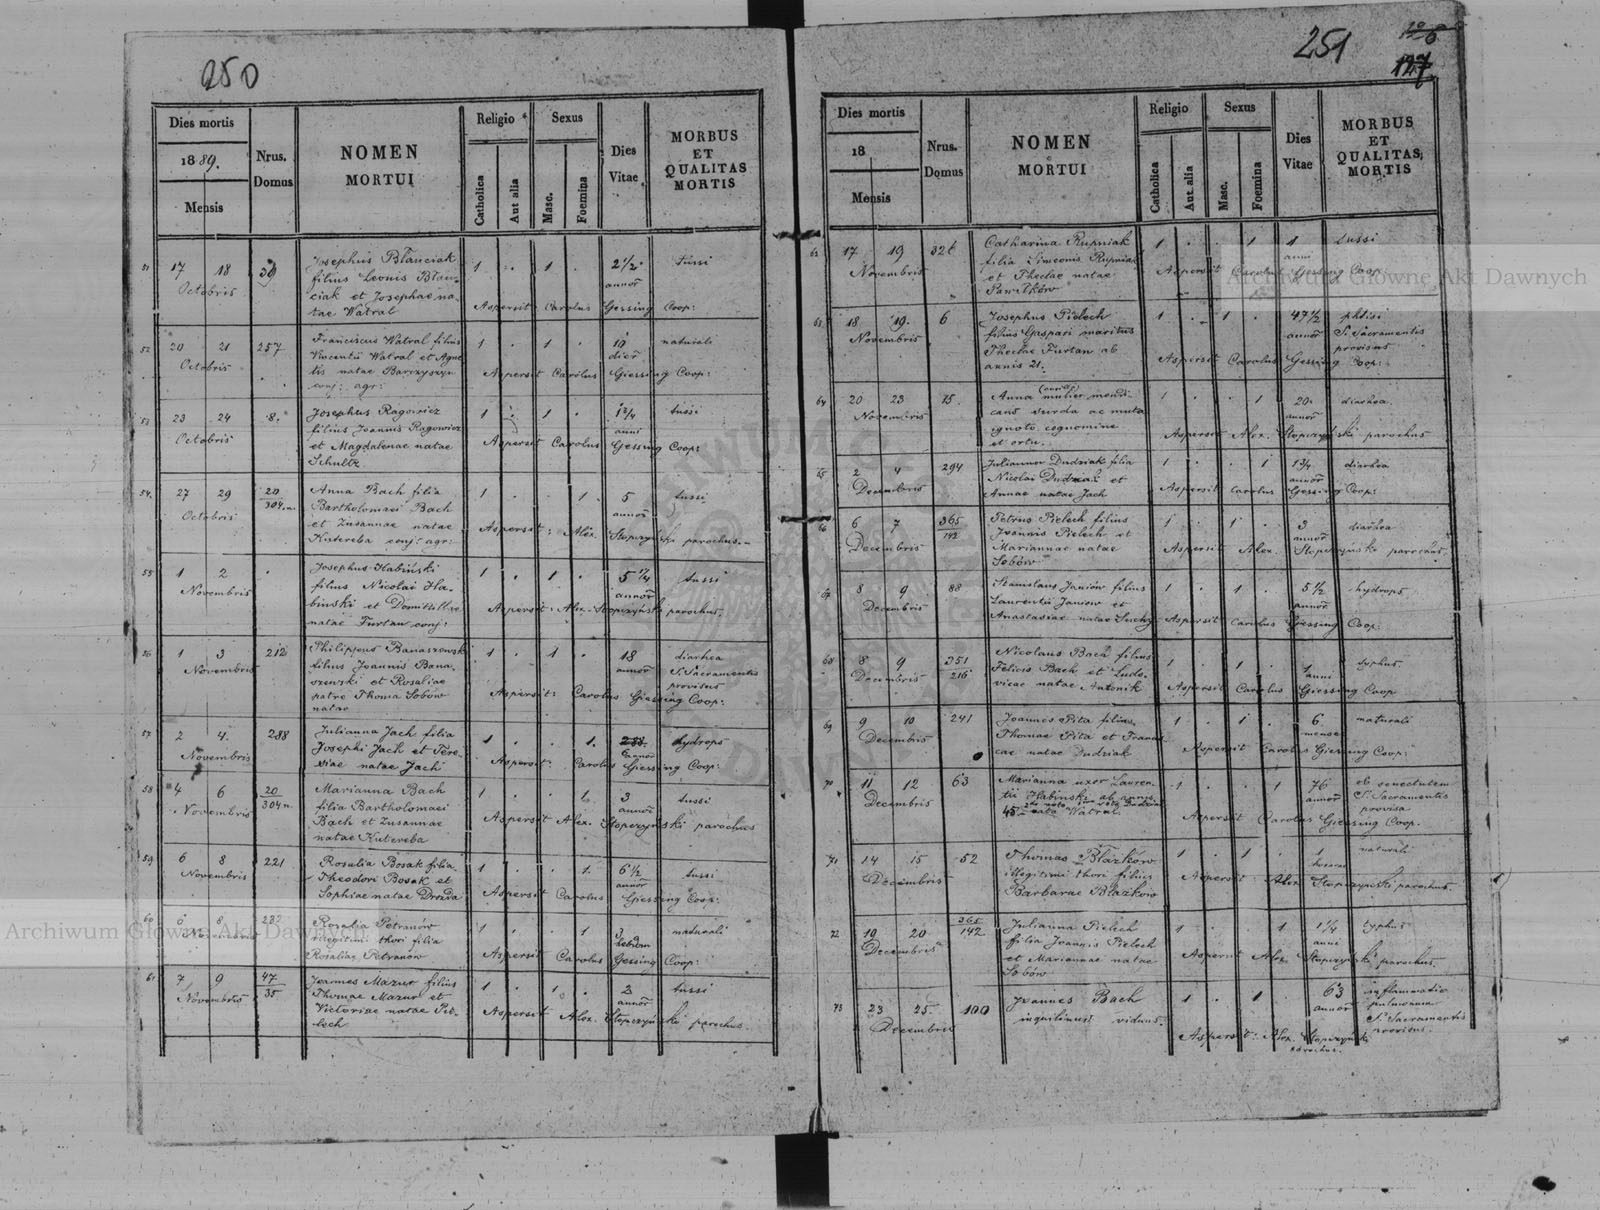 250
Dies mortis
1889.
Mensis
Nrus.
Domus
NOMEN
MORTUI
Religio
Catholica
Aut alia
Sexus
Masc.
Foemina
Dies
Vitae
MORBUS
ET
QUALITAS
MORTIS
51 17 18 Octobris 39
Josephus Błanciak
filius Leonis Błan-
ciak et Josephae na-
tae Watral
1 . 1 . 2 1/2 annor tussi
Aspersit Carolus Gessing Coop:
52 20 21 Octobris 257
Franciscus Watral filius
Vincentii Watral et Agne
tis natae Barczyszyn
conj: agr:
1 . 1 . 19 dier naturali
Aspersit Carolus Giessing Coop:
53 23 24 Octobris 8.
Josephus Ragowicz
filius Joannis Ragowicz
et Magdalenae natae
Schultz
1 . 1 . 1 3/4 anni tussi
Aspersit Carolus Gessing Coop:
54. 27 29 Octobris 20/304.n.
Anna Bach filia
Bartholomaei Bach
et Zusannae natae
Kutereba conj: agr:
1 . . 1. 5 annor tussi
Aspersit: Alex. Stopczyński parochus.-
55 1 2 Novembris .
Josephus Habiński
filius Nicolai Ha-
binski et Domitillae
natae Furtan conj:
1 . 1 . 5 1/4 annor tussi
Aspersit: Alex. Stopczyński parochus.
56 1 3 Novembris 212
Philippus Banaszewski
filius Joannis Bana-
szewski et Rosaliae
patre Thoma Sobów
natae
1 . 1 . 18 annor diarhea
S. Sacramentis
provisus
Aspersit: Carolus Giessing Coop:
57 2 4. Novembris 288
Julianna Jach filia
Josephi Jach et Tere-
siae natae Jach
1 . . 1. annor hydrops
Aspersit: Carolus Giessing Coop:
58 4 6 Novembris 20/304 n.
Marianna Bach
filia Bartholomaei
Bach et Zusannae
natae Kutereba
1 . . 1 3 annor tussi
Aspersit Alex. Stopczyński parochus
59 6 8 Novembris 221
Rosalia Bosak filia
Theodori Bosak et
Sophiae natae Drozda
1 . . 1. 6 1/2 annor tussi
Aspersit Carolus Giessing Coop:
60 6 8 Novembris 282
Rosalia Petranów
illegitimi thori filia
Rosaliae Petranów
1 . . 1 3 hebdom naturali
Aspersit Carolus Gessing Coop:
61 7 9 Novembris 47/35
Joannes Mazur filius
Thomae Mazur et
Victoriae natae Pie-
lech
1 . 1 . 2 annor tussi
Aspersit Alex. Stopczyński parochus
251
127
Dies mortis
18
Mensis
Nrus.
Domus
NOMEN
MORTUI
Religio
Catholica
Aut alia
Sexus
Masc.
Foemina
Dies
Vitae
MORBUS
ET
QUALITAS
MORTIS
62 17 19 Novembris 326
Catharina Rupniak
filia Simeonis Rupniak
et Theclae natae
Pawilków
1 . . 1 1 anni tussi
Aspersit Carolus Gessing Coop
63 18 19. Novembris 6
Josephus Pielech
filius Gaspari maritus
Theclae Furtan ab
annis 21.
1 . 1 . 47 1/2 annor phtisi
S. Sacramentis
provisus
Aspersit Carolus Gessing Coop:
64 20 23 Novembris 15.
Anna mulier mendi-
cans surda ac muta
ignoto cognomine
et ortu.
1 . . 1 20. annor diarhea
Aspersit Alex. Stopczyński parochus
65 2 4 Decembris 294
Julianna Dudziak filia
Nicolai Dudziak et
Annae natae Jach
1 . . 1 1 3/4 annor diarhea
Aspersit Carolus Gessing Coop:
66 6 7 Decembris 365/142
Petrus Pielech filius
Joannis Pielech et
Mariannae natae
Sobów
1 . 1 . 3 annor diarhea
Aspersit Alex. Stopczyński parochus.
67 8 9 Decembris 88
Stanislaus Janiów filius
Laurentii Janiow et
Anastasiae natae Suchy
1 . 1 . 5 1/2 annor hydrops
Aspersit Carolus Giessing Coop:
68 8 9 Decembris 351/216
Nicolaus Bach filius
Felicis Bach et Ludo-
vicae natae Antonik
1 . 1 . 1 anni typhus
Aspersit Carolus Giessing Coop
69 9 10 Decembris 241
Joannes Pita filius
Thomae Pita et Francis
cae natae Dudziak
1 . 1 . 6 mense naturali
Aspersit Carolus Giessing Coop:
70 11 12 Decembris 63
Marianna uxor Lauren-
tii Habinski ab annis
45 nata Watral
1 . . 1 76 annor ob senectutem
S. Sacramentis
provisa
Aspersit Carolus Giessing Coop.
71 14 15 Decembris 52
Thomas Błażków
illegitimi thori filius
Barbarae Błażkow
1 . 1 . 1 naturali
Aspersit Alex Stopczyński parochus.
72 19 20 Decembris 365/142
Julianna Pielech
filia Joannis Pielech
et Mariannae natae
Sobów
1 . . 1 1 1/4 anni typhus
Aspersit Alex. Stopczyński parochus.
73 23 25. Decembris 100
Joannes Bach
inquilinus viduus.
1 . 1 . 63 annor inflammatio
pulmonum
S. Sacramentis
provisus.
Aspersit: Alex. Stopczyński
parochus.
Archiwum Główne Akt Dawnych
Archiwum Główne Akt Dawnych